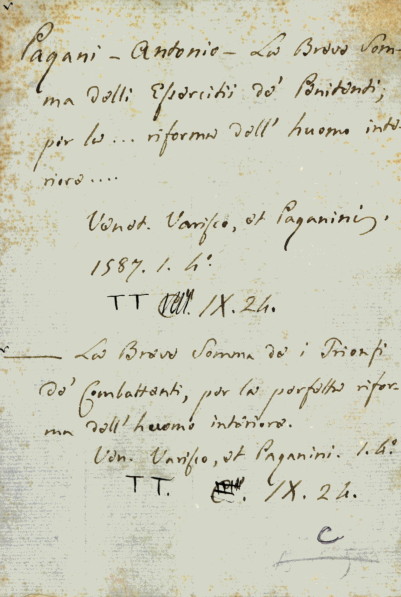 Pagani - Antonio - La Breve Som-
ma delli Essercitii de' Penitenti;
per la ... riforma dell' huomo inte-
riore ....
Venet. Varisco, et Paganini,
1587. 1. 4º.
TT IX. 24.
La Breve Somma de i Trionfi
de' Combattenti, per la perfetta rifor-
ma dell' huomo interiore.
Ven. Varisco, et Paganini. 1. 4º
TT. IX. 24.
C